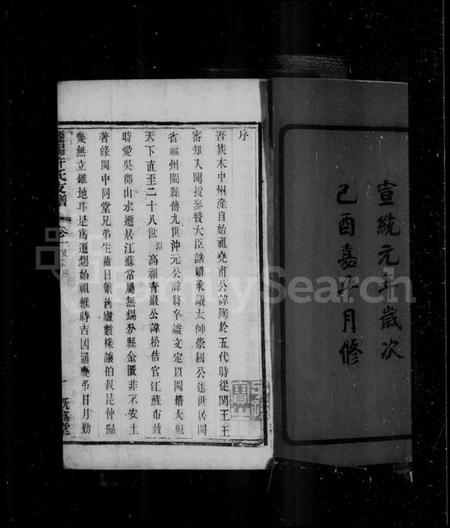 宣統元年歲次
己酉嘉平月修
序
吾族本中州產自始祖堯甫公諱陶於五代時從閩王王
審知入閩授參贊大臣誥贈承議太師崇國公遂世居閩
省福州閩縣傳九世沖元公諱將卒諡文定以閩籍大魁
天下直至二十八世 高祖青巖公諱松佶官江蘇布政
時愛吳郡山水遷居江蘇常屬無錫縣金匱非不安土
著緣閩中同堂兄弟生齒日繁舊廬數椽讓伯叔是仲歸
幾無立錐地耳是為遷錫始祖維時吉凶通慶弔日月勤
許氏支譜 卷一 序
一
FamilySearch